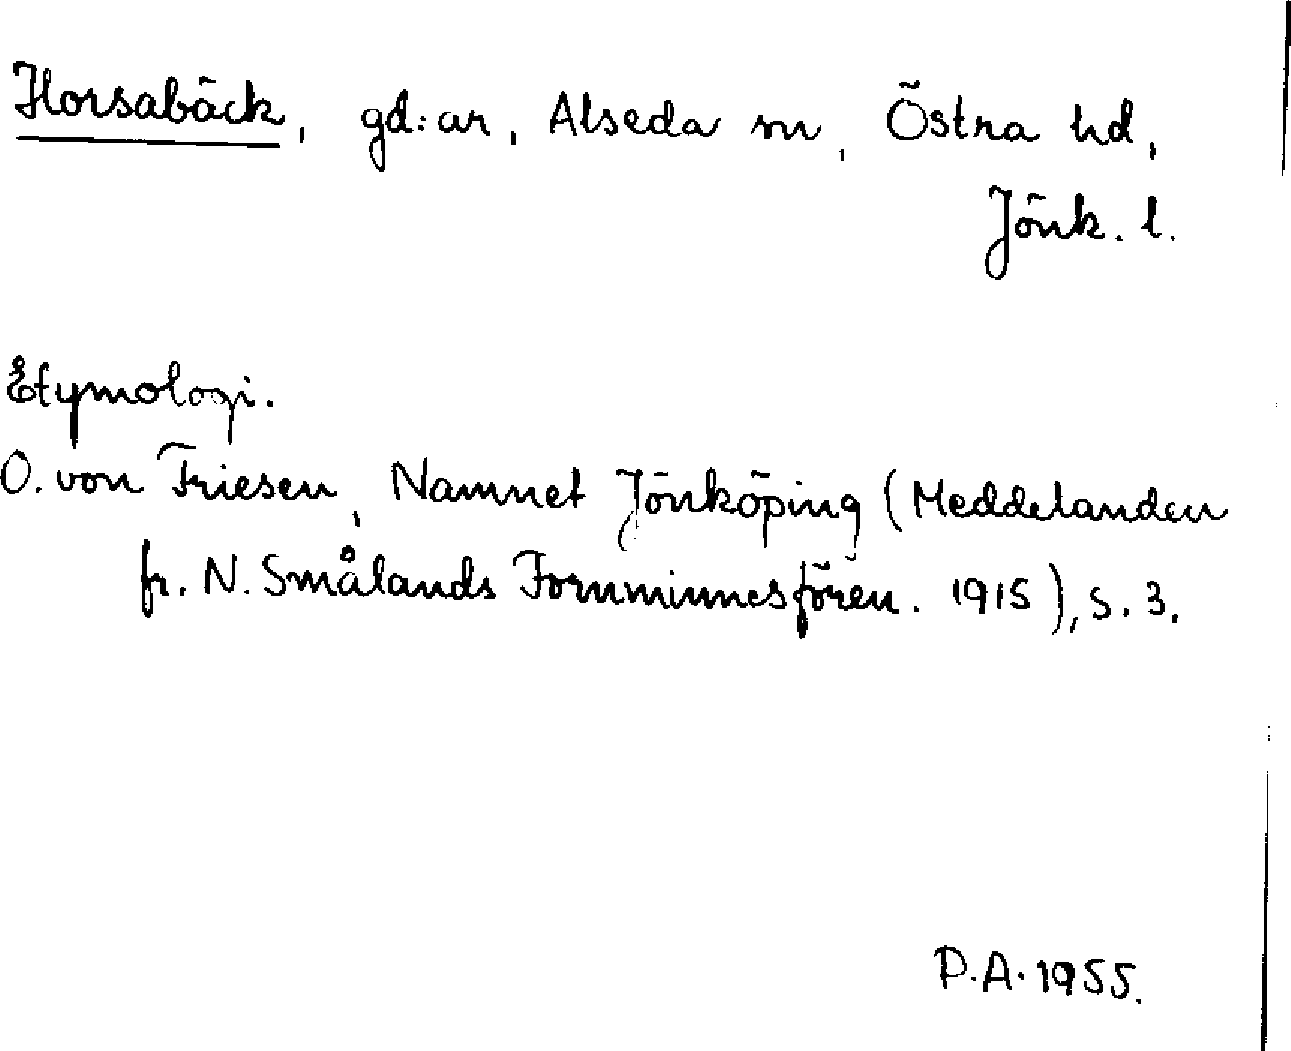 Horsabäck, gd:ar, Alseda sn, Östra hd,
Jönk. l.
Etymologi.
O. von Friesen, Namnet Jönköping (Meddelanden
fr. N. Smålands Fornminnesfören. 1915), s. 3.
P.A. 1955.